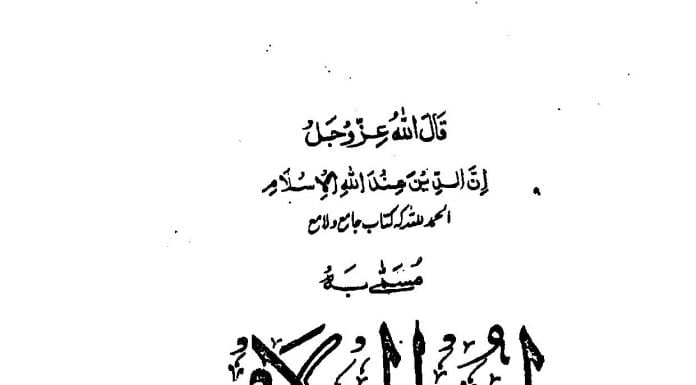 قَالَ اللهُ عِزّوُجَلُ
اِنَّ الدِّيْنَ عِنْدَ اللهِ الْاِسْلَام
الحمد للہ کہ کتاب جامع ولامع
مُسَمّٰی بَہٗ